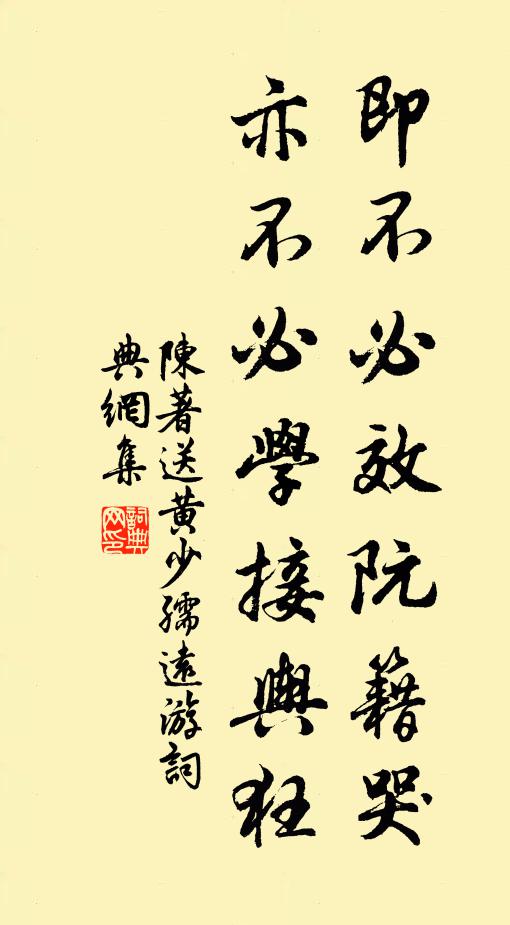 即不必效阮籍哭
亦不必學接輿狂
陳著送黃少孺遠游詞
典網集
詞典網印